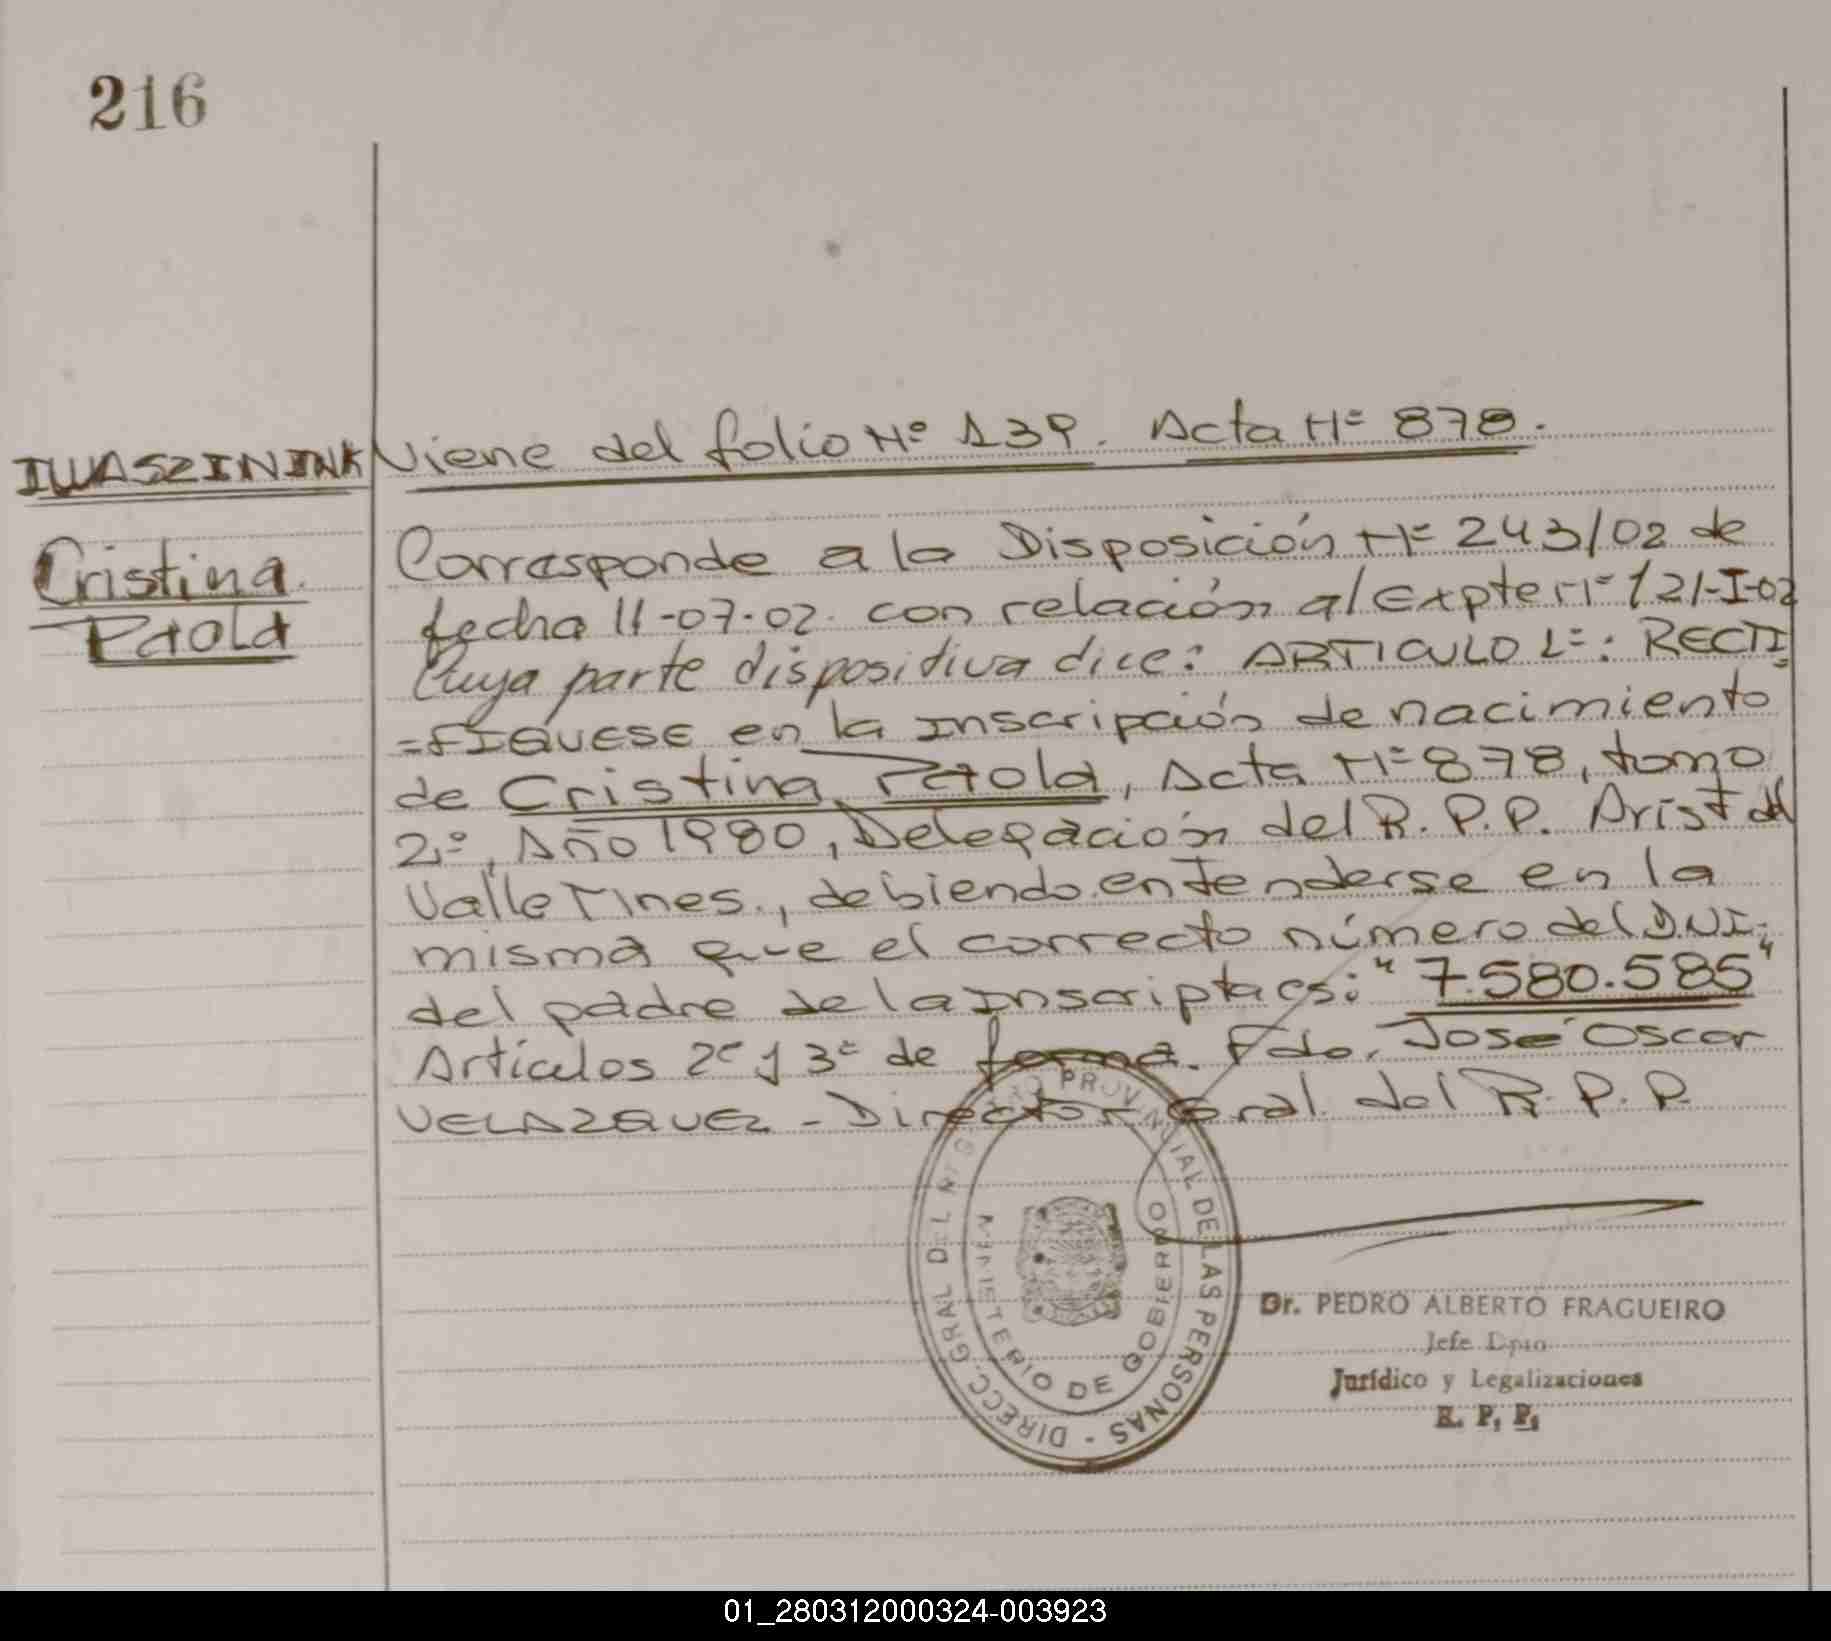 216
IWASZININK
Cristina
Paola
Viene del folio Nº 139. Acta Nº 878.
Corresponde a la Disposición Nº 243/02 de
fecha 11-07-02. con relación al Expte Nº 121-I-02
Cuya parte dispositiva dice: ARTICULO 1º: RECTI
=FIQUESE en la Inscripción de nacimiento
de Cristina Paola, Acta Nº 878, tomo
2º, Año 1980, Delegación del R.P.P. Arist del
Valle Mnes., debiendo entenderse en la
misma que el correcto número del D.N.I.
del padre de la Inscripta es: "7.580.585"
Artículos 2º y 3º de forma. Fdo. José Oscar
VELAZQUEZ - Director Gral. del R.P.P.
DIRECC. GRAL DEL PROVINCIAL DE LAS PERSONAS -
MINISTERIO DE GOBIERNO
Dr. PEDRO ALBERTO FRAGUEIRO
Jefe Dpto
Jurídico y Legalizaciones
R. P. P.
01_280312000324-003923